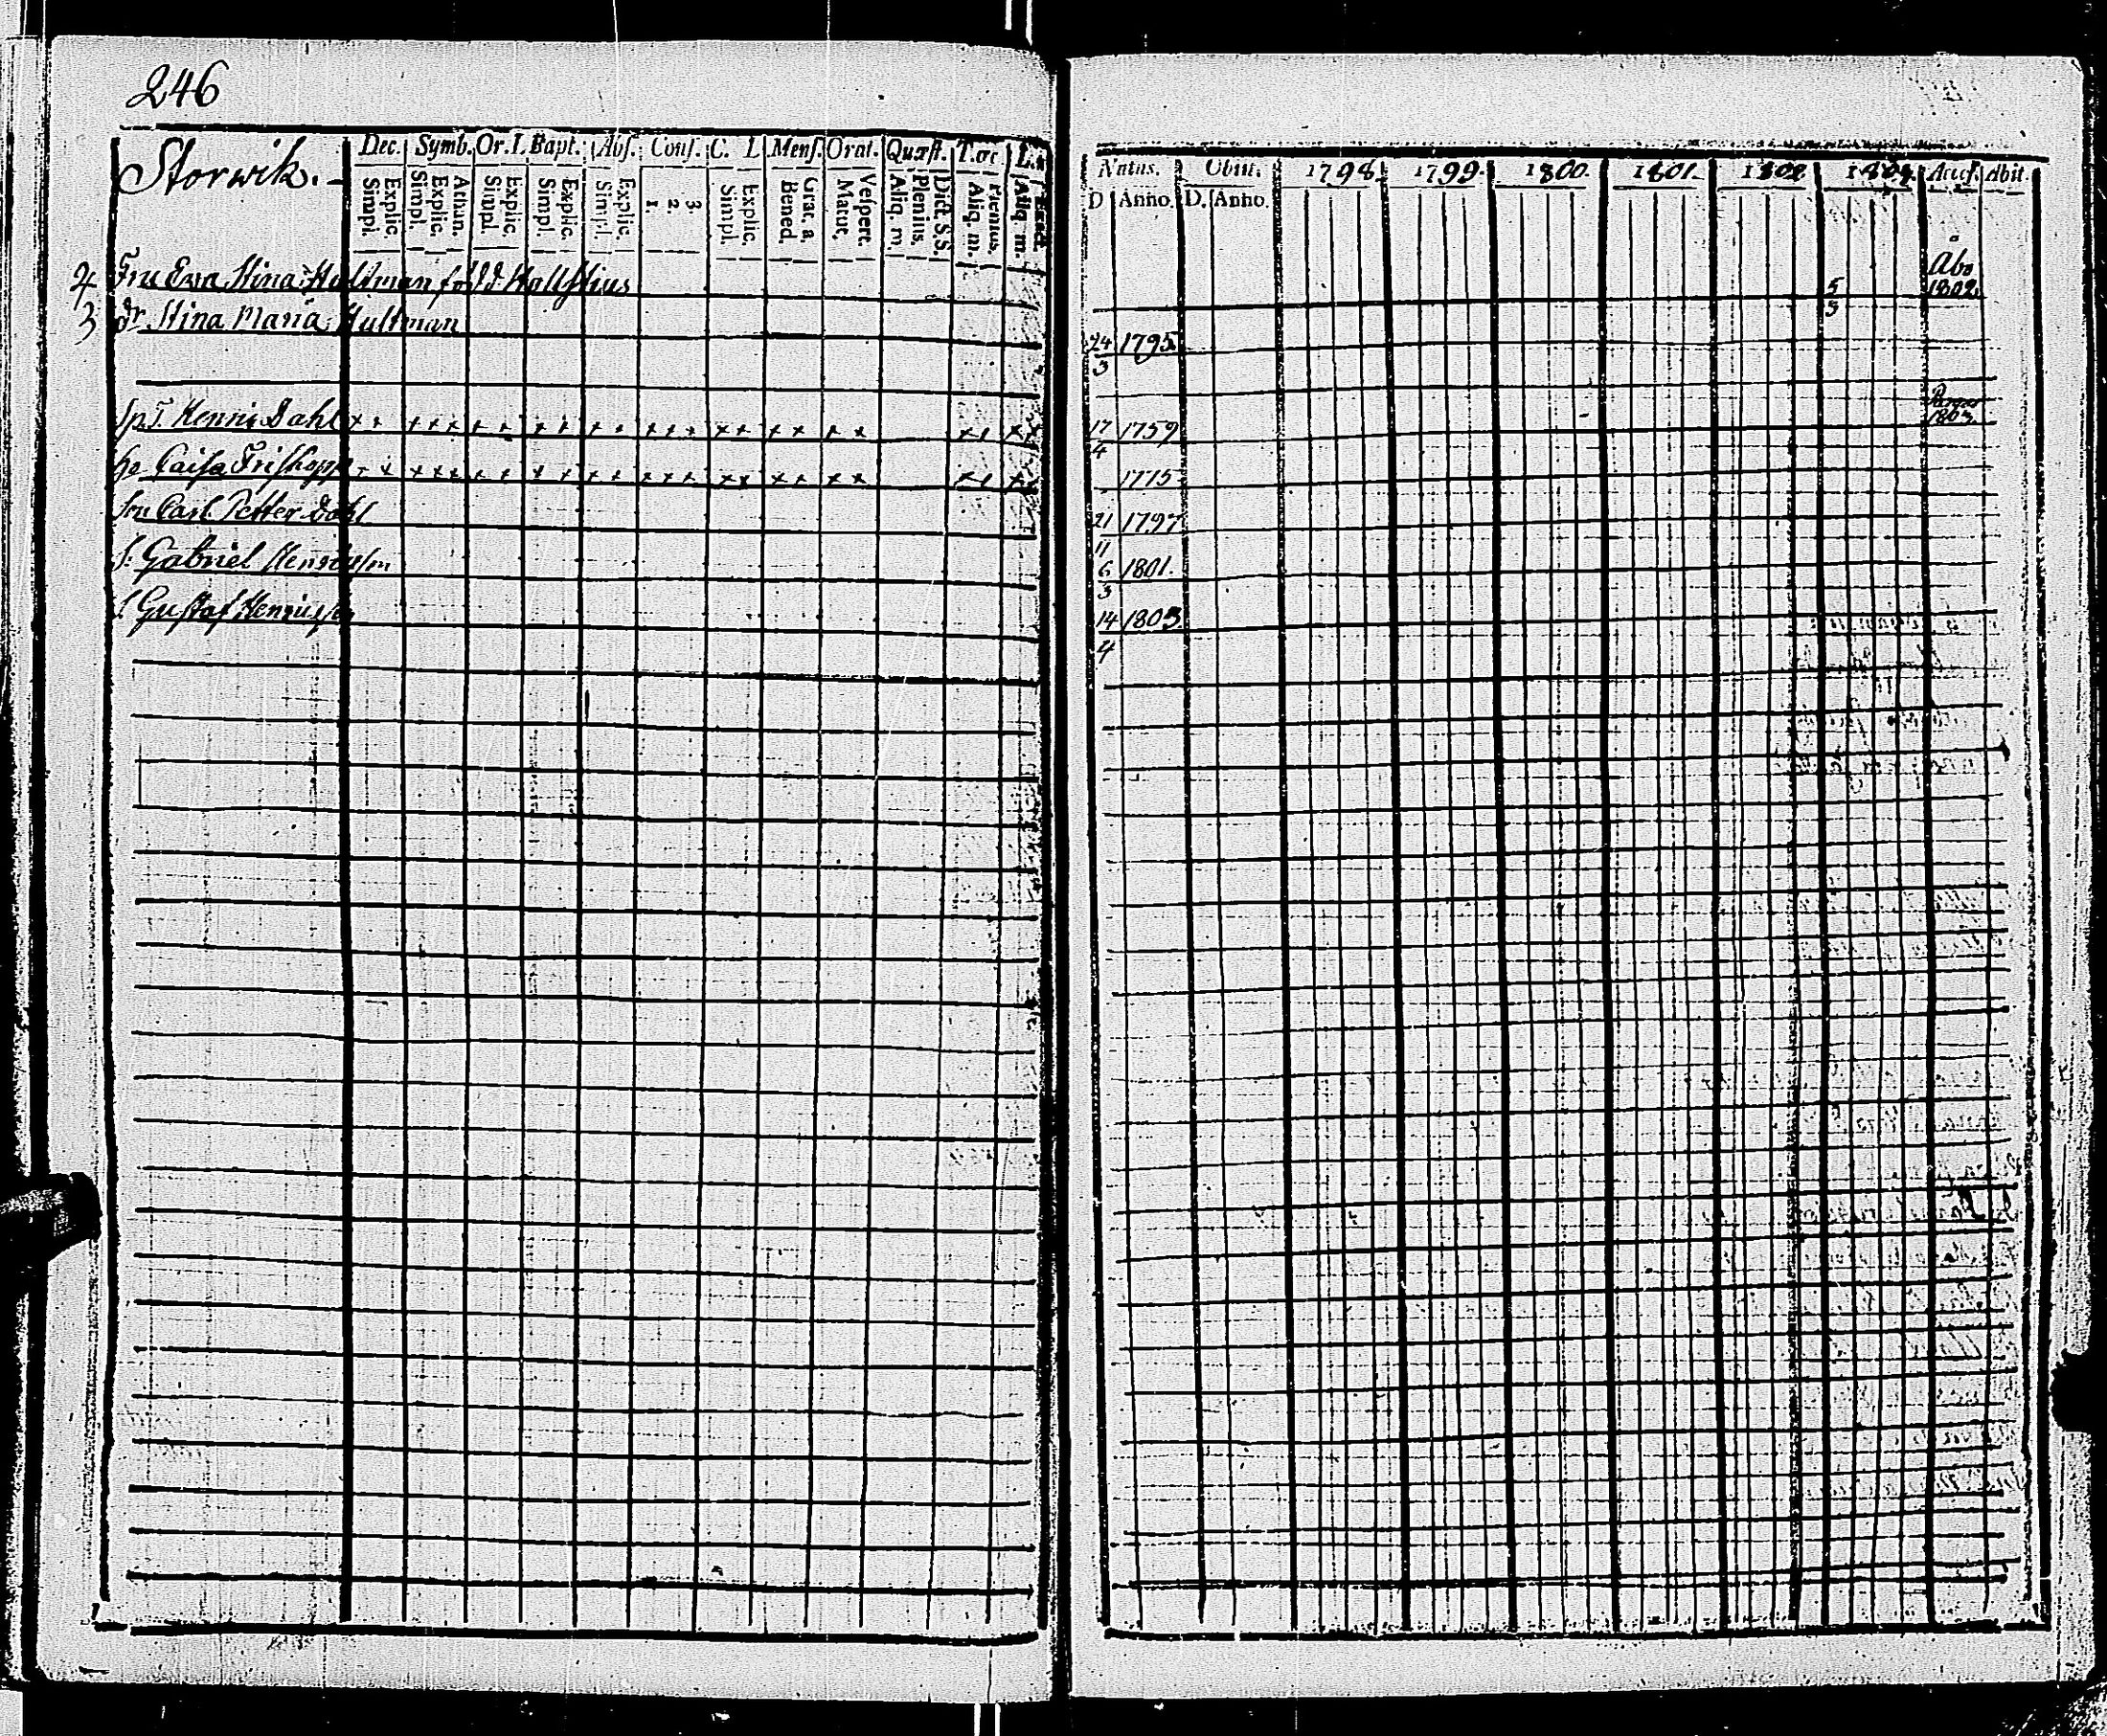 246
Storwik.
Dec. Symb. Or. L Bapt. Abs. Conf. C. L Mens. Orat. Quæst. L.
Simpl. Explic. Simpl. Explic. Athan. Simpl. Explic. Simpl. Explic. Simpl. Explic. 1. 2. 3. Simpl. Explic. Bened. Grat. a. Matut. Vespert. Aliq. m. Plenius. Dict. S. S. Aliq. m. Plenius. Aliq. m.
Natus. Obiit. 1798. 1799. 1800. 1801. 1802 Access. Abiit
D Anno. D. Anno.
4 Fru Eva Stina Hultman född 5/3 Åbo 1802.
3 dr Stina Maria Hultman 24/3 1795
Henric Dahl x x x x x x x x x x x x x x x x x x x x x x x x 17/4 1759 1803
Caisa x x x x x x x x x x x x x x x x x x x x x x x 1775
Son Carl Petter Dahl 21/11 1797
S. Gabriel 6/3 1801.
S Gustaf Henricsson 14/4 1803